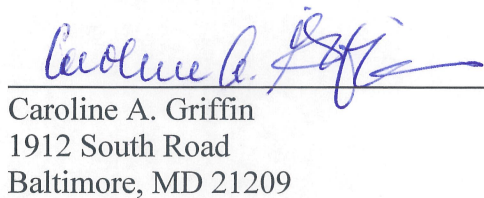 Caroline A. Griffin
Caroline A. Griffin
1912 South Road
Baltimore, MD 21209